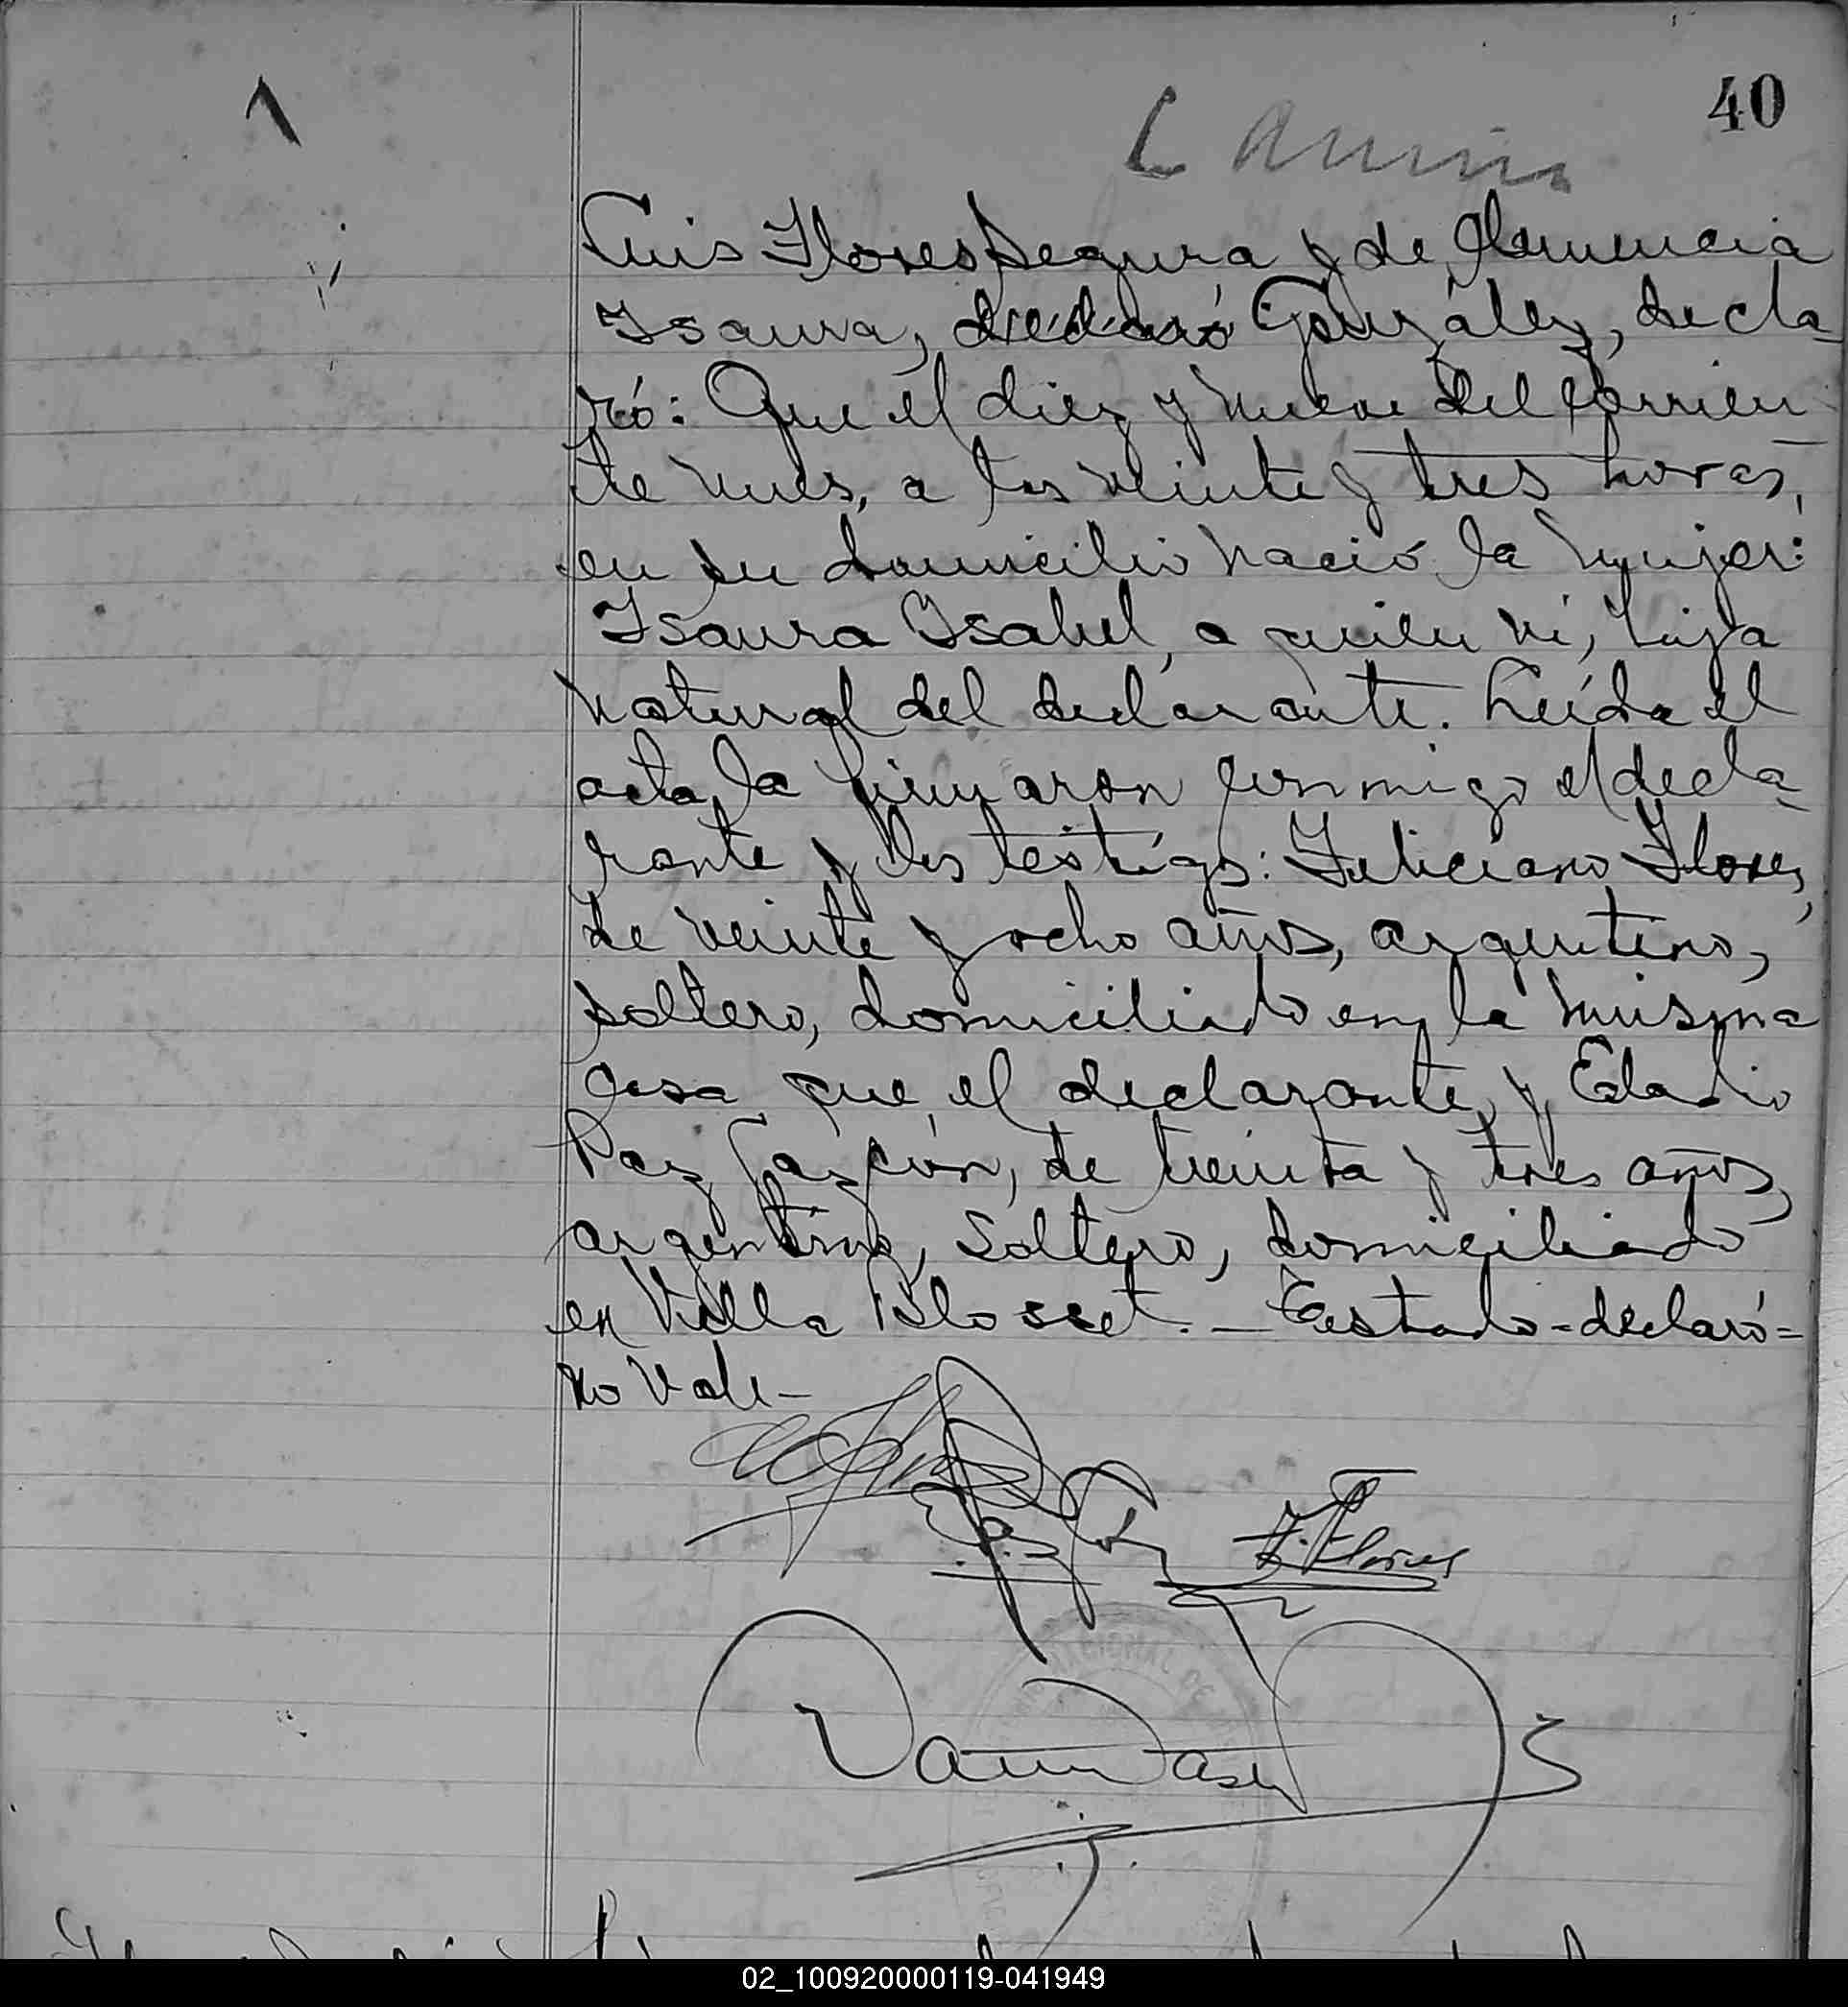 40
Luis Flores Segura y de Clemencia
Isaura, declaró González, decla-
ró: Que el diez y nueve del corrien-
te mes, a las veinte y tres horas,
en su domicilio nació la mujer:
Isaura Isabel, a quien vi, hija
natural del declarante. Leída el
acta, la firmaron conmigo el decla-
rante y los testigos: Feliciano Flores,
de veinte y ocho años, argentino,
soltero, domiciliado en la misma
casa que el declarante, y Eladio
Paz, de treinta y tres años,
argentino, soltero, domiciliado
en Villa Blosset.- Testado=declaró=
no vale-
F. Flores
NACIONAL DE
02_100920000119-041949